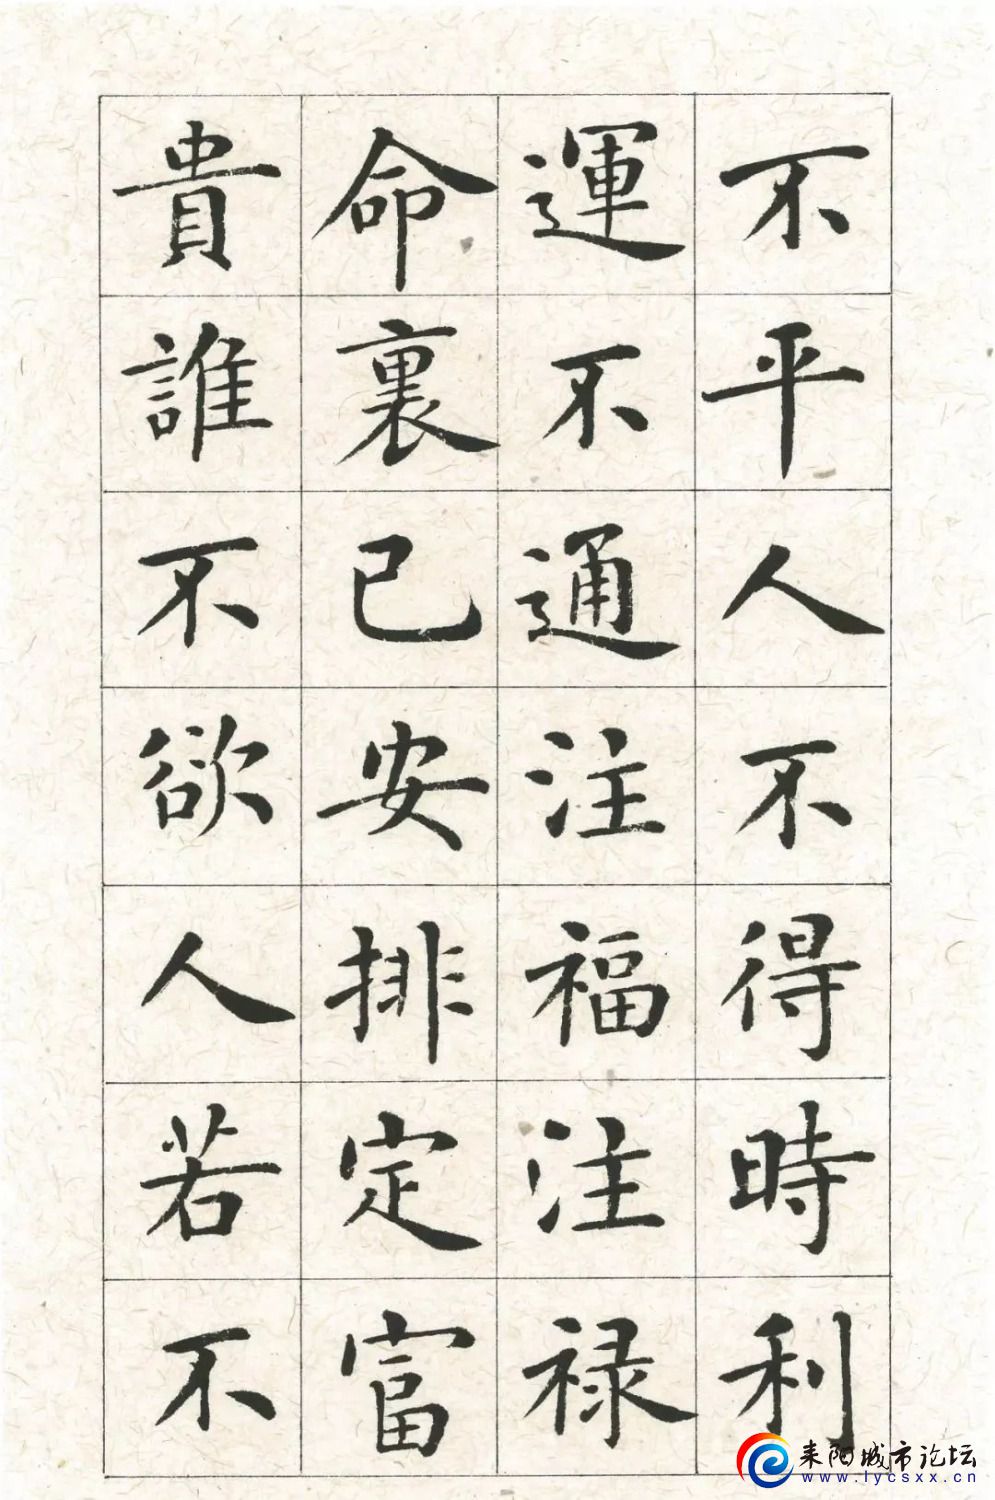 不平人不得時利
運不通注福注禄
命裏已安排定富
貴誰不欲人若不
耒阳城市论坛
www.lycsxx.cn